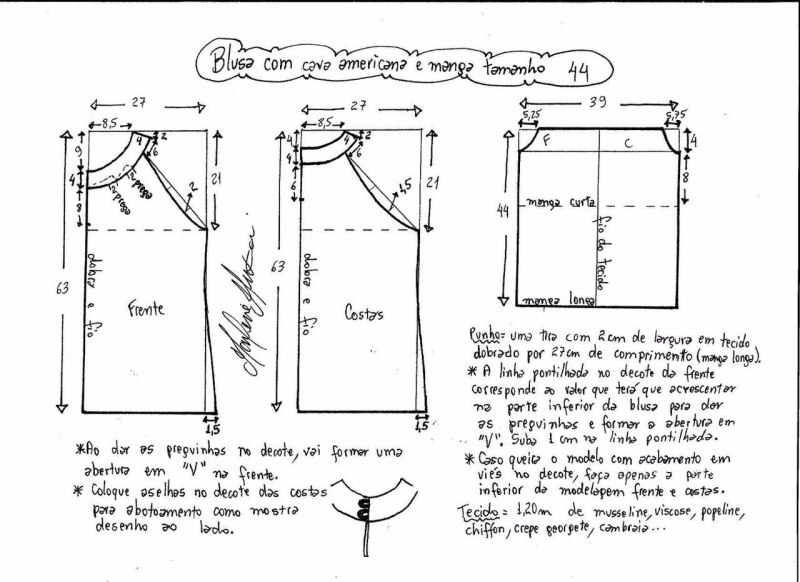 Blusa com cava americana e manga tamanho 44
27
8,5
2
4
6
9
4
8
2 prega
2 prega
2
21
63
dobra e fio
Frente
1,5
27
8,5
2
4
4
6
4
6
1,5
21
63
dobra e fio
Costas
1,5
39
5,25
5,75
F
C
4
8
44
manga curta
fio do tecido
manga longa
Punho= uma tira com 2cm de largura em tecido
dobrado por 27cm de comprimento (manga longa).
* A linha pontilhada no decote da frente
corresponde ao valor que terá que acrescentar
na parte inferior da blusa para dar
as preguinhas e formar a abertura em
"V". Suba 1cm na linha pontilhada.
* Caso queira o modelo com acabamento em
viés no decote, faça apenas a parte
inferior da modelagem frente e costas.
Tecido= 1,20m de musseline, viscose, popeline,
chiffon, crepe georgete, cambraia...
*Ao dar as preguinhas no decote, vai formar uma
abertura em "V" na frente.
* Coloque aselhas no decote das costas
para abotoamento como mostra
desenho ao lado.